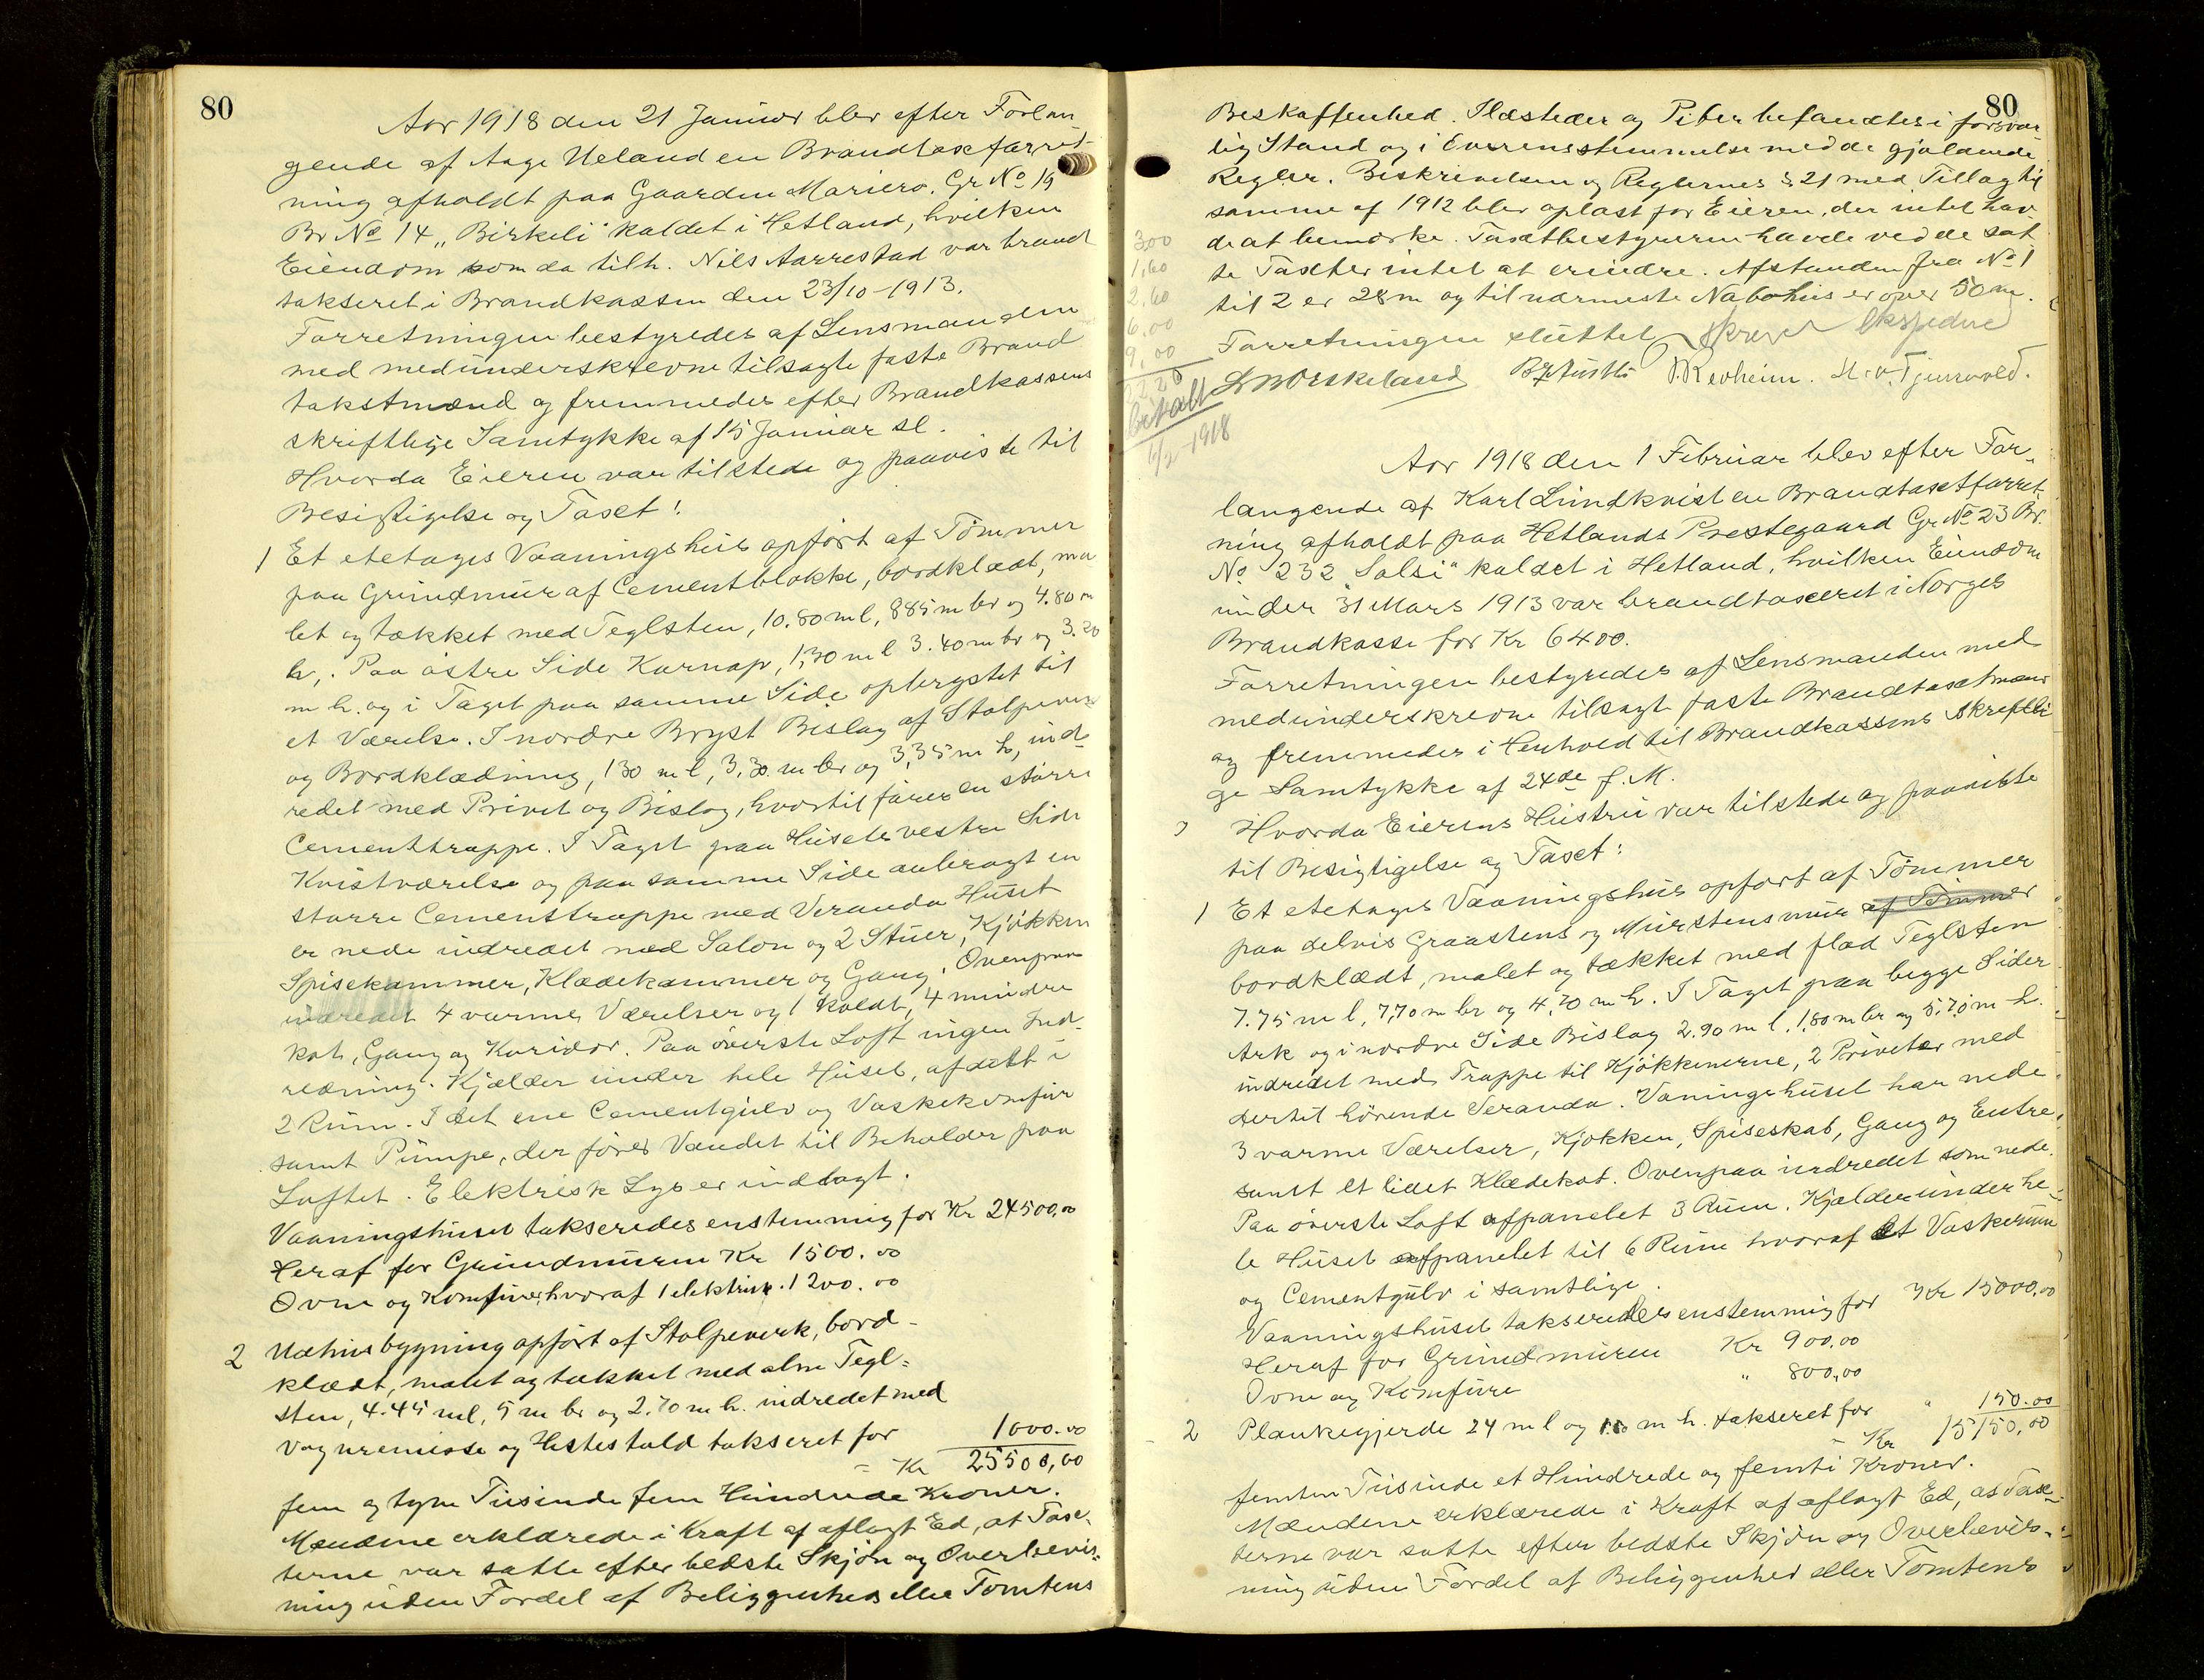 80
Aar 1918 den 21 Januar blev efter Forlan-
gende af Aage Ueland en Brandtaxtforret-
ning afholdt paa Gaarden Mariero. Gr No 19
Br No 14 „Birkeli" kaldet i Hetland, hvilken
Eiendom som da tilh. Nils Aarrestad var brand
takseret i Brandkassen den 23/10-1913.
Forretningen bestyredes af Lensmanden
med medunderskrevne tilsagte faste Brand
takstmænd og fremmedes efter Brandkassens
skriftlige Samtykke af 15 Januar sl.
Hvorda Eieren var tilstede og paaviste til
Besigtigelse og Taxt!
1 Et etetages Vaaningshus opført af Tømmer
paa Grundmur af Cementblokke, bordklædt, ma
let og tækket med Teglsten, 10.80 m l, 885 m br og 4.80 m
h,. Paa østre Side Karnap, 1,30 m l 3.40 m br og 3.20
m h. og i Taget paa samme Side opbrystet til
et Værelse. I nordre Bryst Beslag af Stolpeverk
og Bordklædning, 130 m l, 3,30 m br og 3,35 m h, ind-
redet med Privet og Bislag, hvortil fører en større
Cementtrappe. I Taget paa Husets vestre Side
Kvistværelse og paa samme Side anbragt en
større Cementtrappe med Veranda Huset
er nede indredet med Salon og 2 Stuer, Kjøkken
Spisekammer, Klædekammer og Gang. Ovenpaa
indredet 4 varme Værelser og 1 koldt, 4 mindre
kot, Gang og Koridor. Paa øverste Loft ingen Ind-
redning. Kjælder under hele Huset, afdelt i
2 Rum. I det ene Cementgulv og Vaskekomfur
samt Pumpe, der fører Vandet til Beholder paa
Loftet. Elektrisk Lys er indlagt.
Vaaningshuset takseredes enstemmig for Kr 24500.00
Heraf for Grundmuren Kr 1500.00
Ovne og Komfurer hvoraf 1 elektrisk. 1200.00
2 Udhusbygning opført af Stolpeverk, bord-
klædt, malet og tækket med alm Tegl=
sten, 4.45 m l, 5 m br og 2.70 m h. indredet med
Vognremisse og Hestestald takseret for 1000.00
= Kr 25500,00
fem og tyve Tusinde fem Hundrede Kroner.
Mændene erklærede i Kraft af aflagt Ed, at Tax-
terne var satte efter bedste Skjøn og Overbevis-
ning uden Fordel af Beliggenhed eller Tomtens
80
Beskaffenhed. Ildsteder og Piber befandtes i forsvar
lig Stand og i Overensstemmelse med de gjældende
Regler. Beskrivelsen og Reglernes § 21 med Tillæg til
samme af 1912 blev oplæst for Eieren, der intet hav-
de at bemærke. Taxtbestyreren havde ved de sat
te Taxter intet at erindre. Afstanden fra No 1
til 2 er 28 m og til nærmeste Nabohus er over 50 m.
Forretningen sluttet
skrevet ekspedere
3.00
1,60
2,60
6,00
9,00
22,20
betalt
6/2-1918
Aar 1918 den 1 Februar blev efter For-
langende af Karl Lundkvist en Brandtaxtforret-
ning afholdt paa Hetlands Prestegaard Gr No 23 Br.
No 232 „Solsi" kaldet i Hetland, hvilken Eiendom
under 31 Mars 1913 var brandtaxeret i Norges
Brandkasse for Kr 6400.
Forretningen bestyredes af Lensmanden med
medunderskrevne tilsagte faste Brandtaxtmænd
og fremmedes i Henhold til Brandkassens skreftli
ge Samtykke af 24de f. M.
Hvorda Eierens Hustru var tilstede og paaviste
til Besigtigelse og Taxt:
1 Et etetages Vaaningshus opført af Tømmer
paa delvis Graastens og Murstensmur af Tømmer
bordklædt, malet og tækket med flad Teglsten
7.75 m l, 7,70 m br og 4,70 m h. I Taget paa begge Sider
Ark og i nordre Side Bislag 2.90 m l. 1,80 m br og 5,70 m h.
indredet med Trappe til Kjøkkenerne, 2 Priveter med
dertil hørende Veranda. Vaningshuset har nede
3 varme Værelser, Kjøkken, Spiseskab, Gang og Entre,
samt et lidet Klædekot. Ovenpaa indredet som nede.
Paa øverste Loft afpanelet 3 Rum. Kjælder under he-
le Huset afpanelet til 6 Rum hvoraf et Vaskerum
og Cementgulv i samtlige.
Vaaningshuset takseredes enstemmig for Kr 15000.00
Heraf for Grundmuren Kr 900.00
Ovne og Komfure " 800,00
2 Plankegjerde 24 m l og m h. takseret for " 150.00
= Kr 15150,00
femten Tusinde et Hundrede og femti Kroner.
Mændene erklærede i Kraft af aflagt Ed, at Tax-
terne var satte efter bedste Skjøn og Overbevis-
ning uden Fordel af Beliggenhed eller Tomtens